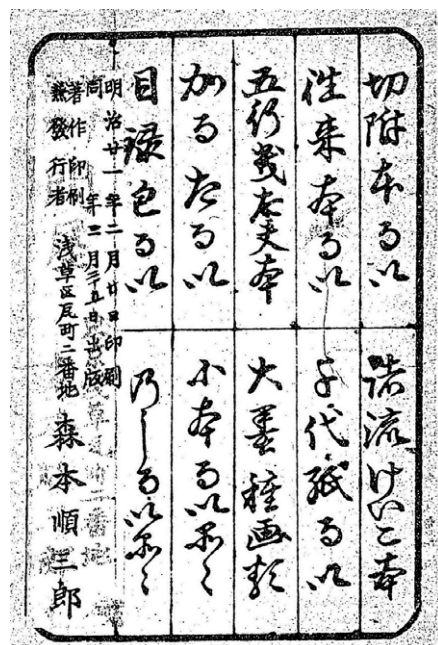 切附本るい
諸流けいこ本
往来本るい
千代紙るい
五行義太夫本
種画類
加るたるい
小本るい品〻
目録包るい
のしるい品〻
明治廿一年二月廿日印刷
同年二月二五日出版
著作印刷
兼發行者 浅草区瓦町二番地 森本順三郎